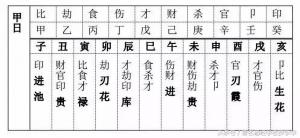 甲日
比 劫 食 伤 才 财 杀 官 卩 印
甲 乙 丙 丁 戊 己 庚 辛 壬 癸
子 丑 寅 卯 辰 巳 午 未 申 酉 戌 亥
印进池
财官印贵
比食才禄
劫刃花
才劫印库
食杀才
伤财进
财伤劫贵
杀才卩
官刃霞
才官伤
卩比生花